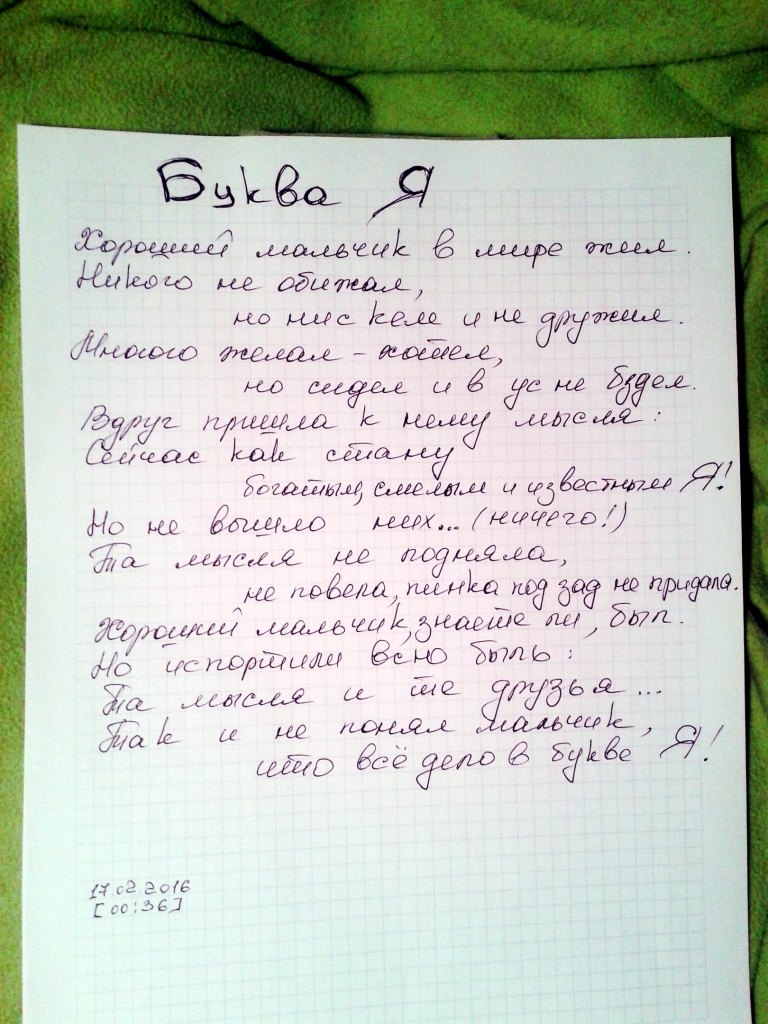 Буква Я
Хороший мальчик в мире жил.
Никого не обижал,
но нис кем и не дружил.
Многого желал - хотел,
но сидел и в ус не бздел.
Вдруг пришла к нему мысля:
Сейчас как стану
богатым, смелым и известным Я!
Но не вышло них... (ничего!)
Та мысля не подняла,
не повела, пинка под зад не придала.
Хороший мальчик, знаете ли, был.
Но испортили всю быль:
Та мысля и те друзья...
Так и не понял мальчик,
что всё дело в букве Я!
17.02.2016
[00:36]